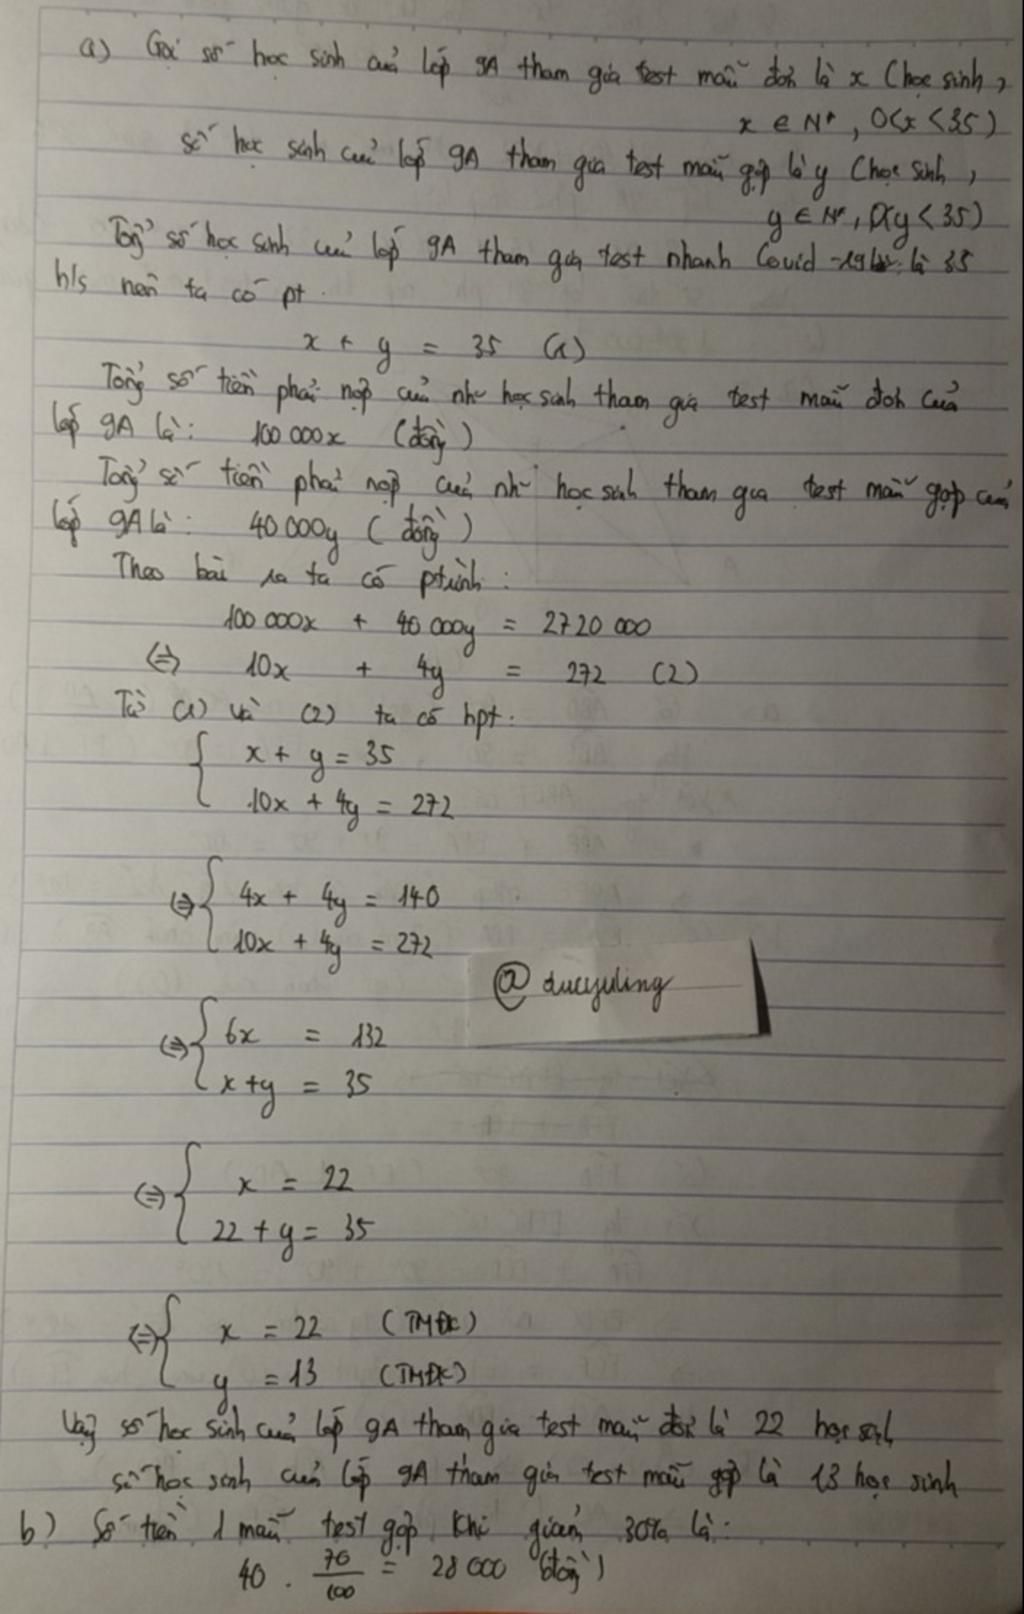 a) Gọi số học sinh của lớp 9A tham gia test mẫu đơn là x (học sinh,
x ∈ N*, 0<x<35)
số học sinh của lớp 9A tham gia test mẫu gộp là y (học sinh,
y ∈ N*, 0<y<35)
Tổng số học sinh của lớp 9A tham gia test nhanh Covid -19 là 35
h/s nên ta có pt
x + y = 35 (1)
Tổng số tiền phải nộp của nhữ học sinh tham gia test mẫu đơn của
lớp 9A là: 100 000x (đồng)
Tổng số tiền phải nộp của nhữ học sinh tham gia test mẫu gộp của
lớp 9A là: 40 000y (đồng)
Theo bài ra ta có ptrình:
100 000x + 40 000y = 2720 000
⇔ 10x + 4y = 272 (2)
Từ (1) và (2) ta có hpt:
{ x + y = 35
10x + 4y = 272
⇔ { 4x + 4y = 140
10x + 4y = 272
@ ducyuling
⇔ { 6x = 132
x+y = 35
⇔ { x = 22
22 + y = 35
⇔ { x = 22 (TMĐK)
y = 13 (TMĐK)
Vậy số học sinh của lớp 9A tham gia test mẫu đơn là 22 học sinh
số học sinh của lớp 9A tham gia test mẫu gộp là 13 học sinh
b) Số tiền 1 mẫu test gộp khi giảm 30% là:
40 . 70/100 = 28 000 (đồng)